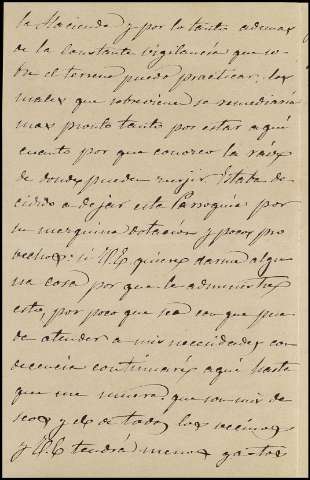 la Hacienda y por lo tanto ademas
de la constante vigilancia que so-
bre el terreno puedo practicar; los
males que sobreviene se remediaria
mas pronto tanto por estar aqui
cuanto por que conozco la raiz
de donde pueden surjir. Estaba de-
cidido a dejar esta Parroquia por
su mezquina dotacion y pocos pro
vechos: si V.E. quiere darme algu
na cosa por que le administre
esto, por poco que sea con que pue
da atender a mis necesidades con
decencia continuaré aqui hasta
que me muera: que son mis de
seos y los de todos los vecinos
y V.E. tendrá menos gastos